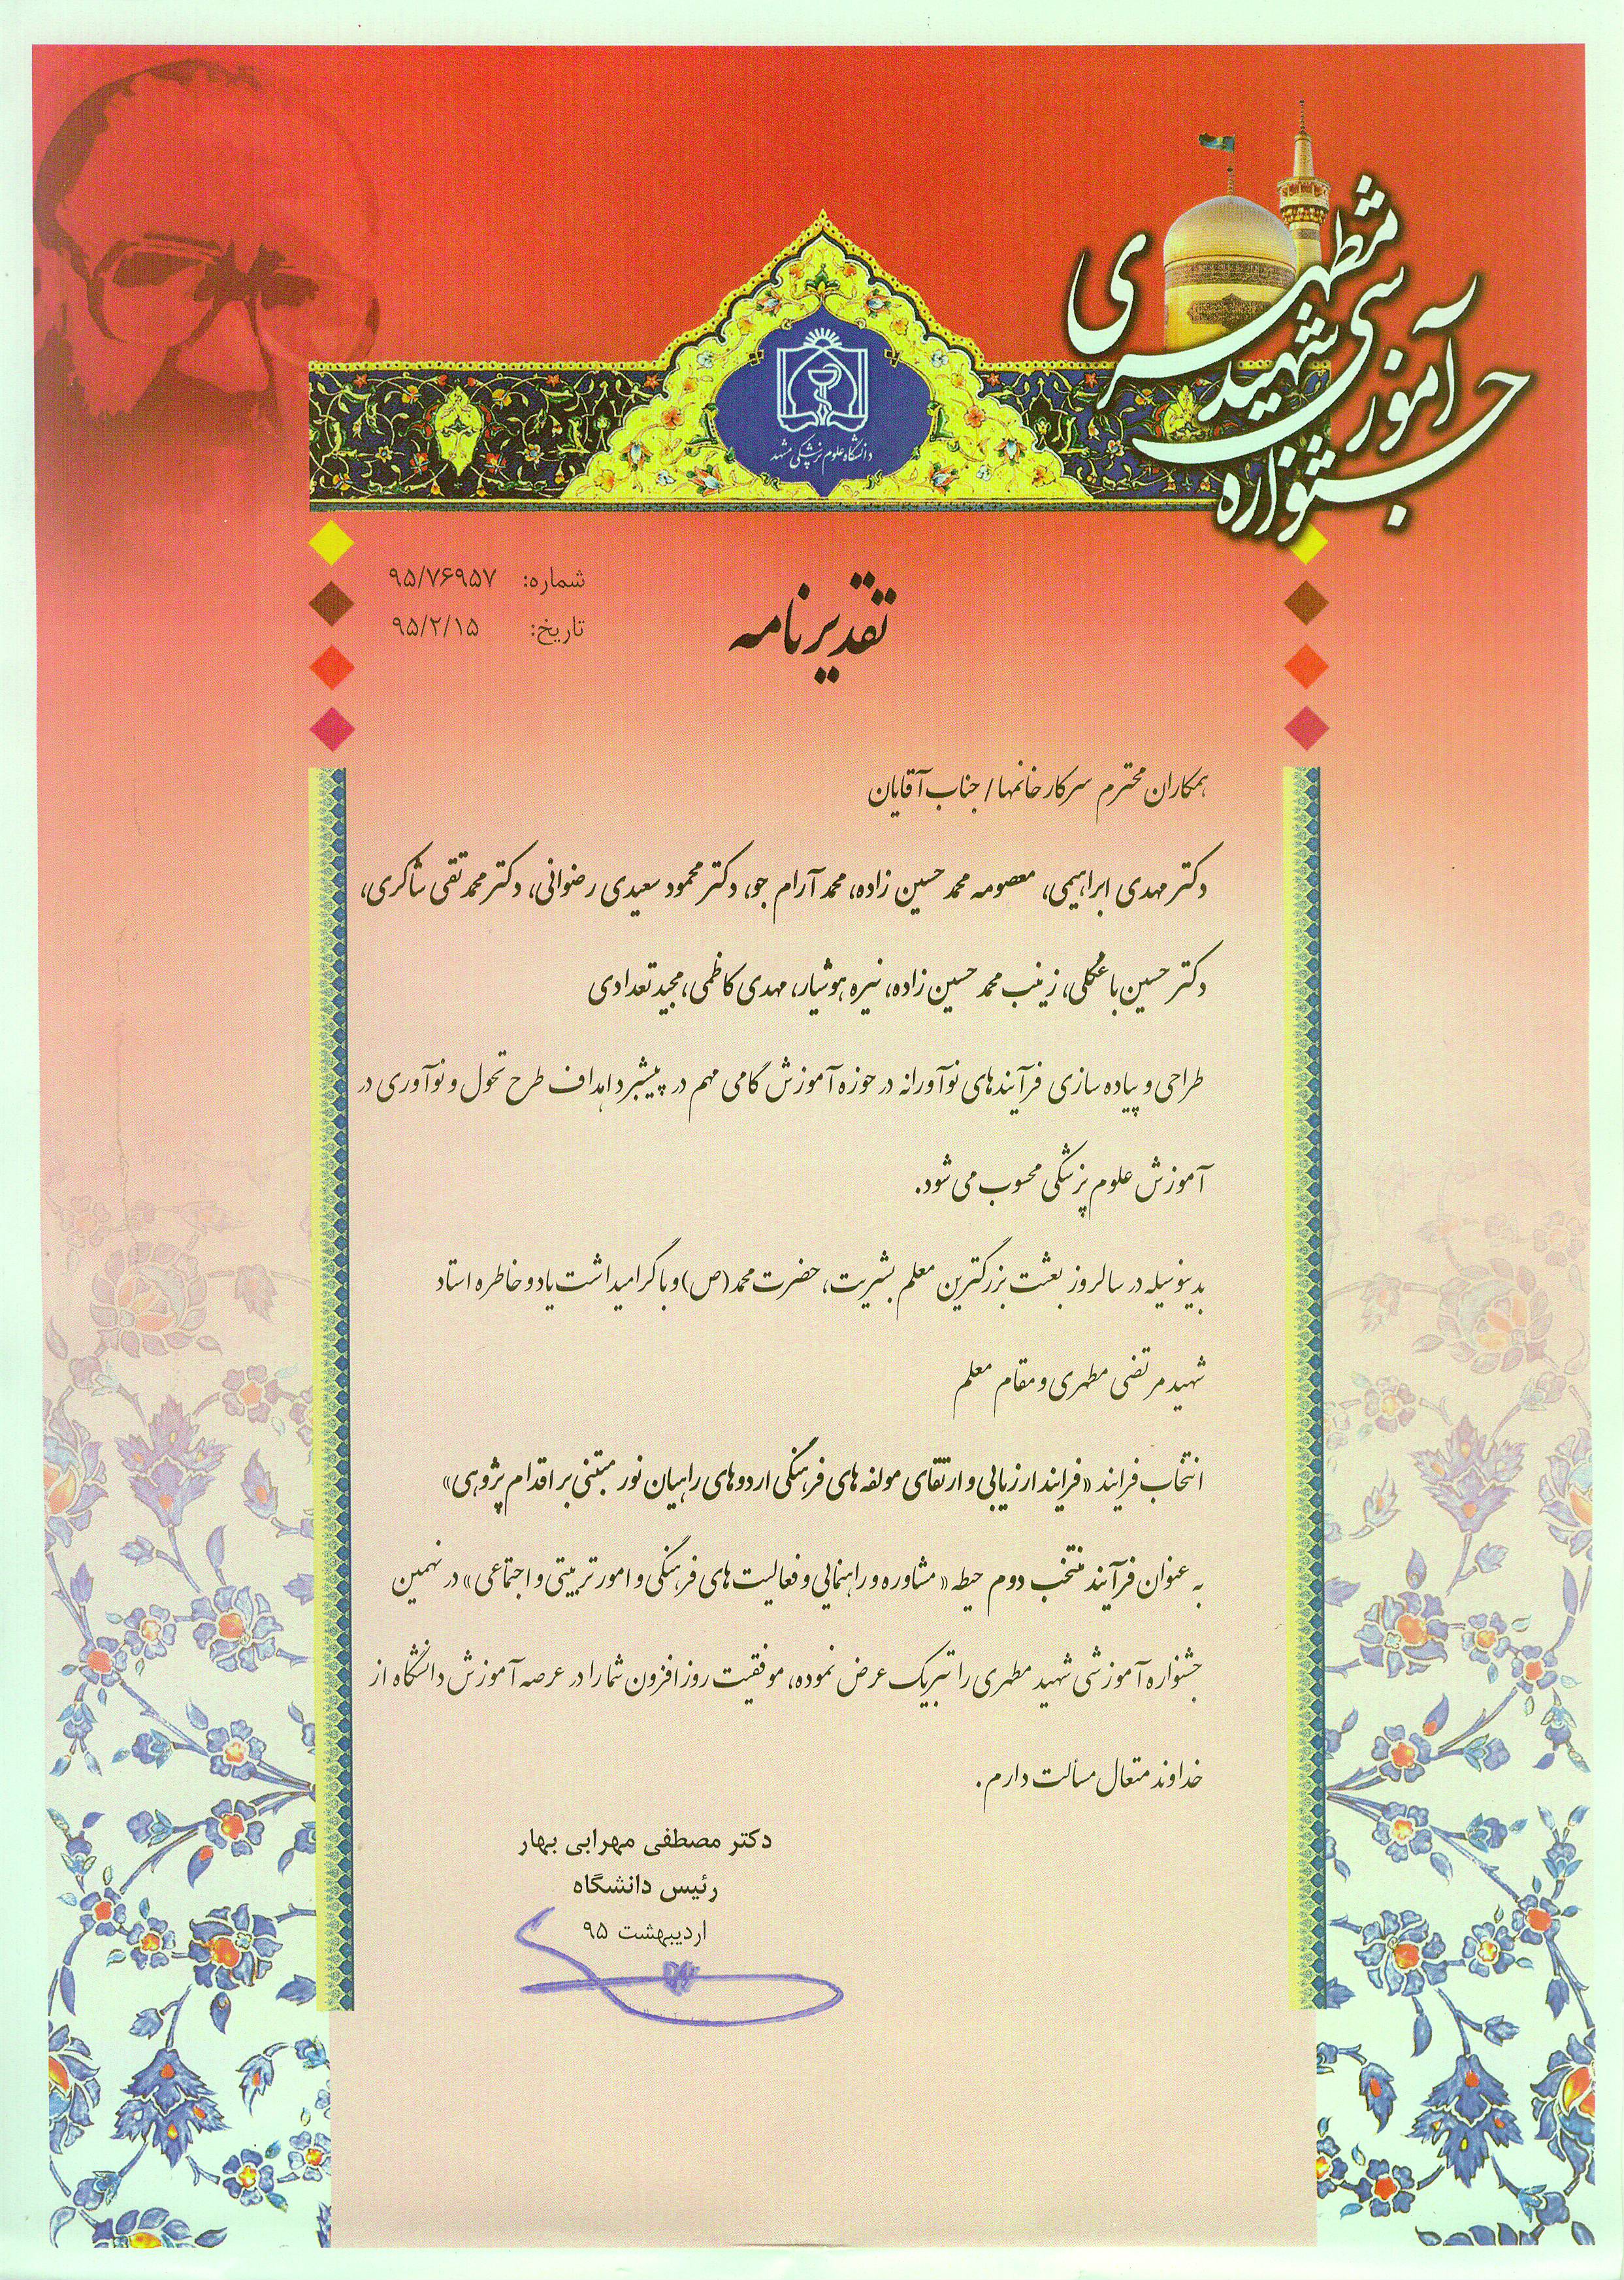 جشنواره آموزشی شهید مطهری
دانشگاه علوم پزشکی مشهد
تقدیرنامه
شماره: ۹۵/۷۶۹۵۷
تاریخ: ۹۵/۲/۱۵
همکاران محترم سرکار خانمها / جناب آقایان
دکتر مهدی ابراهیمی، معصومه محمد حسین زاده، محمد آرام جو، دکتر محمود سعیدی رضوانی، دکتر محمد تقی شاکری،
دکتر حسین باغگلی، زینب محمد حسین زاده، نیره هوشیار، مهدی کاظمی، مجید تعدادی
طراحی و پیاده سازی فرآیندهای نوآورانه در حوزه آموزش گامی مهم در پیشبرد اهداف طرح تحول و نوآوری در
آموزش علوم پزشکی محسوب می شود.
بدینوسیله در سالروز بعثت بزرگترین معلم بشریت، حضرت محمد (ص) و با گرامیداشت یاد و خاطره استاد
شهید مرتضی مطهری و مقام معلم
انتخاب فرایند «فرایند ارزیابی و ارتقای مولفه های فرهنگی اردوهای راهیان نور مبتنی بر اقدام پژوهی»
به عنوان فرآیند منتخب دوم حیطه «مشاوره و راهنمایی و فعالیت های فرهنگی و امور تربیتی و اجتماعی» در نهمین
جشنواره آموزشی شهید مطهری را تبریک عرض نموده، موفقیت روز افزون شما را در عرصه آموزش دانشگاه از
خداوند متعال مسألت دارم.
دکتر مصطفی مهرابی بهار
رئیس دانشگاه
اردیبهشت ۹۵